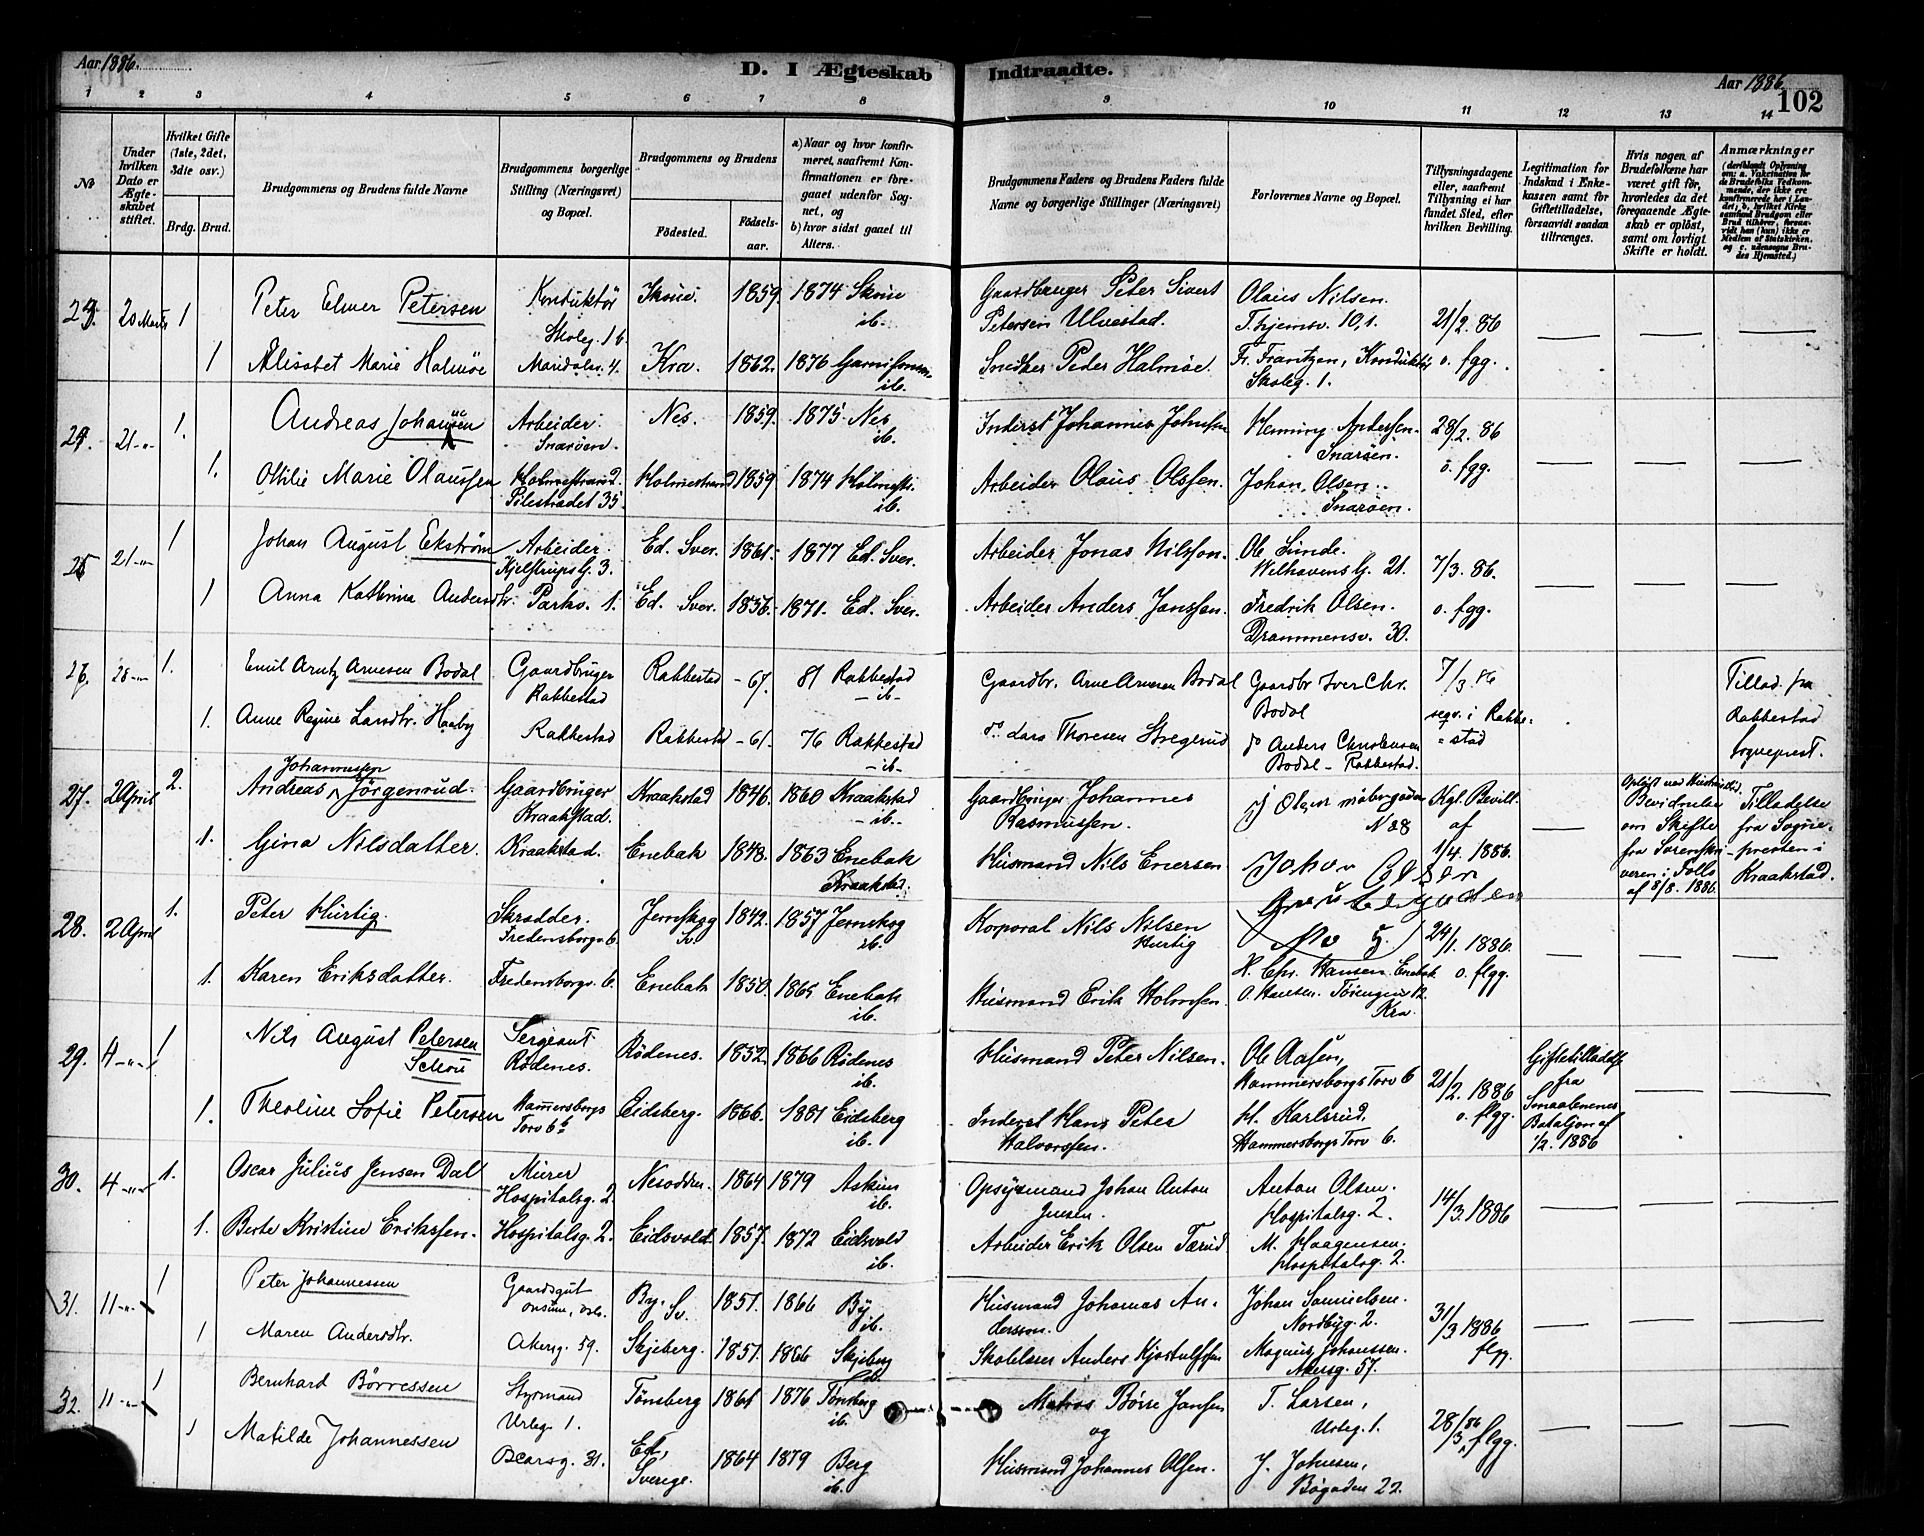 Aar 1886.
D. I Ægteskab Indtraadte.
Aar 1886.
102
1 2 3 4 5 6 7 8 9 10 11 12 13 14
№
Under hvilken Dato er Ægteskabet stiftet.
Hvilket Gifte (1ste, 2det, 3die osv.)
Brdg. Brud.
Brudgommens og Brudens fulde Navne
Brudgommens borgerlige Stilling (Næringsvei) og Bopæl.
Brudgommens og Brudens
Födested.
Födselsaar.
a) Naar og hvor konfirmeret, saafremt Konfirmationen er foregaaet udenfor Sognet, og
b) hvor sidst gaaet til Alters.
Brudgommens Faders og Brudens Faders fulde Navne og borgerlige Stillinger (Næringsvei)
Forlovernes Navne og Bopæl.
Tillysningsdagene eller, saafremt Tillysning ei har fundet Sted, efter hvilken Bevilling.
Legitimation for Indskud i Enkekassen samt for Giftetilladelse, forsaavidt saadan tiltrænges.
Hvis nogen af Brudefolkene har været gift för, hvorledes da det foregaaende Ægteskab er oplöst, samt om lovligt Skifte er holdt.
Anmærkninger
20 Marts 1 Peter Elmer Petersen Konduktör Skoleg. 1 b. 1859. 1874 ib. Gaardbruger Peter Sivert Petersen Ulvestad. Olaus Nilsen. 10,1. 21/2. 86
1 Elisabet Marie Halmöe Maridalsv. 4. Kra. 1862. 1876 ib. Snedker Peder Halmöe. Fr. Frantzen, Konduktör Skoleg. 1. o. fgg.
21 1. Andreas Johansen Arbeider. Snaröen. Nes. 1859. 1875 Nes ib. Inderst Johannes Johnsen Henning Andersen. Snaröen. 28/2. 86
1. Othilie Marie Olaussen Holmestrand. Pilestradet 35. Holmestrand 1859 1874 Holmestr. ib. Arbeider Olaus Olsen. Johan Olsen. Snaröen. o. fgg.
21 1 Johan August Ekström Arbeider. Kjelstrups G. 3. Ed. Sver. 1861. 1877 Ed. Sver. Arbeider Jonas Nilsson. Ole Lunde. Welhavens G. 21. 7/3. 86.
1 Anna Kathrina Andersdtr. Parkv. 1. Ed. Sver. 1856. 1871. Ed. Sver. Arbeider Anders Jansson. Fredrik Olsen. Drammensv. 30. o. fgg.
1. Emil Arntz Arnesen Bodal Gaardbruger Rakkestad Rakkestad - 67. 81 Rakkestad - ib - Gaardbr. Arne Arnesen Bodal Gaardbr Iver Chr. Bodal 7/3. 86 Tillad. fra Rakkestad Sogneprest.
1. Anne Regine Larsdtr. Haaby Rakkestad Rakkestad - 61. 76 Rakkestad - ib - do Lars Thoresen do Anders Christensen Bodal - Rakkestad. i Rakkestad
27. 2 April 2. Andreas Johannessen Jörgenrud. Gaardbruger Kraakstad. Kraakstad 1846. 1860 Kraakstad - ib. - Gaardbruger Johannes Rasmussen. J Olsen N 28 Kgl. Bevill. af 1/4. 1886. Bevidnelse om Skifte fra Sorenskriveren i Follo af 8/8. 1886. Tilladelse fra Sognepresten i Kraakstad.
1. Gina Nilsdatter. Kraakstad. Enebak 1848. 1863 Enebak Kraakstad. Husmand Nils Enersen Johan Olsen Grubbegaden No 5.
28. 2 April 1. Peter Hurtig. Skrædder. Fredensborgv. 6. Jernskog Sv. 1842. 1857 Jernskog ib. Korporal Nils Nilsen Hurtig 24/1. 1886.
1. Karen Eriksdatter. Fredensborgv. 6. Enebak 1850. 1865 Enebak ib. Husmand Erik Holmsen. H. Chr. Hansen. Enebak O. Hansen. Töiengaden 12. Kra. o. flgg.
29. 4 1 Nils August Petersen Schou Sergeant Rödenes. Rödenes. 1852. 1866 Rödenes ib. Husmand Peter Nilsen. Ole Aasen, Hammersborgs Torv 6 21/2. 1886 Giftetilladelse fra Smaalenenes Bataljon af 1/2. 1886
1. Theoline Sofie Petersen Hamersborgs Torv 6 b Eidsberg. 1866. 1881 Eidsberg ib. Inderst Hans Peter Halvorsen. H. Karlsrud. Hammersborgs Torv 6. o. flgg.
30. 4 1. Oscar Julius Jensen Dal Murer Hospitalsg. 2. Nesodden. 1864 1879 Askim ib. Opsynsmand Johan Anton Jensen. Anton Olsen. Hospitalsg. 2. 14/3. 1886
1. Berte Kristine Erikssen. Hospitalsg. 2. Eidsvold. 1857. 1872 Eidsvold ib. Arbeider Erik Olsen Tærud M. Haagensen. Hospitalsg. 2.
31. 11 1 Peter Johannessen Gaardsgut By. Sv. 1851. 1866 By ib. Husmand Johannes Andersson. Johan Samuelsen. Nordbyg. 2. 31/3 1886
1 Maren Andersdtr. Akersg. 59. Skjeberg. 1851. 1866 Skjeberg ib. Skolelærer Anders Magnus Johanssen. Akersg. 57. flgg.
32. 11 1 Bernhard Börressen Styrmand Urteg. 1. Tönsberg 1861 1876 Tönsberg ib. Matros Börre Jansen og T. Larsen, Urteg. 1. 28/3 86 flgg.
1 Matilde Johannessen 31. Ed, Sverige. 1864 1879 Berg ib. Husmand Johannes Olsen. J. Johnsen, Bögaden 22.